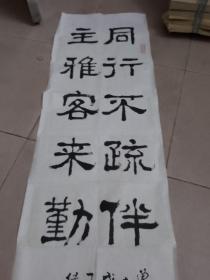 同行不疏伴
主雅客来勤